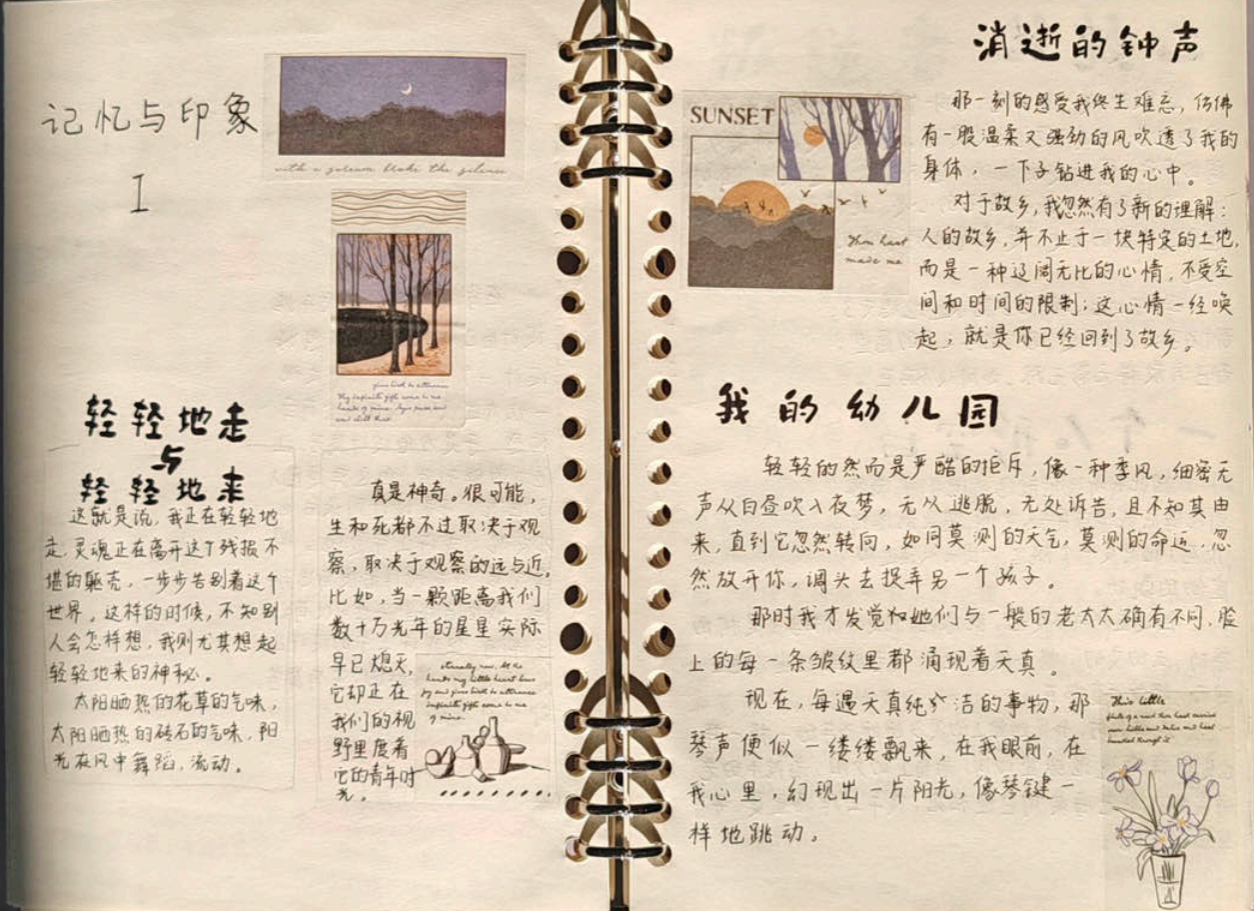 记忆与印象
I
with a scream
the silence
轻轻地走
与
轻轻地来
这就是说，我正在轻轻地
走，灵魂正在离开这个残损不
堪的躯壳，一步步告别着这个
世界，这样的时候，不知别
人会怎样想，我则尤其想起
轻轻地来的神秘。
太阳晒热的花草的气味，
太阳晒热的砖石的气味，阳
光在风中舞蹈，流动。
真是神奇。很可能，
生和死都不过取决于观
察，取决于观察的远与近。
比如，当一颗距离我们
数十万光年的星星实际
早已熄灭，
它却正在
我们的视
野里度着
它的青年时
光。
消逝的钟声
SUNSET
Thou hast
made me
那一刻的感受我终生难忘，仿佛
有一股温柔又强劲的风吹透了我的
身体，一下子钻进我的心中。
对于故乡，我忽然有了新的理解：
人的故乡，并不止于一块特定的土地，
而是一种辽阔无比的心情，不受空
间和时间的限制；这心情一经唤
起，就是你已经回到了故乡。
我的幼儿园
轻轻的然而是严酷的拒斥，像一种季风，细密无
声从白昼吹入夜梦，无从逃脱，无处诉告，且不知其由
来，直到它忽然转向，如同莫测的天气，莫测的命运，忽
然放开你，调头去捉弄另一个孩子。
那时我才发觉和她们与一般的老太太确有不同，脸
上的每一条皱纹里都涌现着天真。
现在，每遇天真纯洁的事物，那
琴声便似一缕缕飘来，在我眼前，在
我心里，幻现出一片阳光，像琴键一
样地跳动。
This little